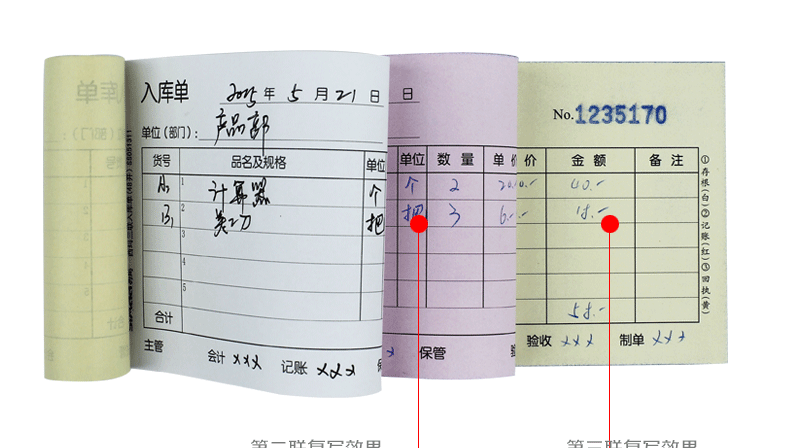 入库单
2015年 5月21日
日
No.1235170
单位(部门):产品部
货号 品名及规格 单位 单位 数量 单价 价 金额 备注
A. 1 计算器 个 个 2 20.- 40.-
B. 2 美工刀 把 把 3 6.- 18.-
3
4
5
合计 58.-
主管 会计 xxx 记账 xxx 保管 验收 xxx 制单 xxx
①存根(白)②记账(红)③回执(黄)
第二联复写效果
第三联复写效果